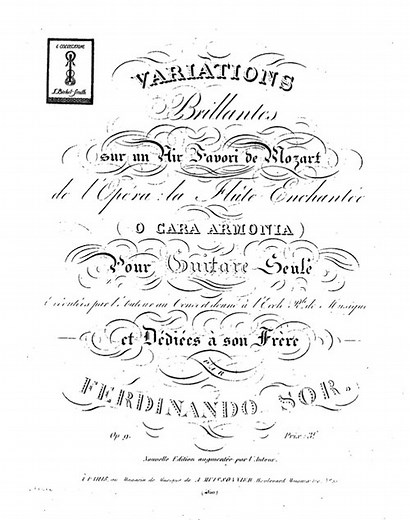 VARIATIONS
Brillantes
sur un Air Favori de Mozart
de l'Opéra: la Flûte Enchantée
( O CARA ARMONIA )
Pour Guitare Seule
Exécutées par l'Auteur au Concert donné à l'Ecole Rle. de Musique
et Dédiées à son Frère
PAR
FERDINANDO SOR.
Op. 9. Prix: 3f.
Nouvelle Edition augmentée par l'Auteur.
À PARIS, au Magasin de Musique de A MEISSONNIER, Boulevard